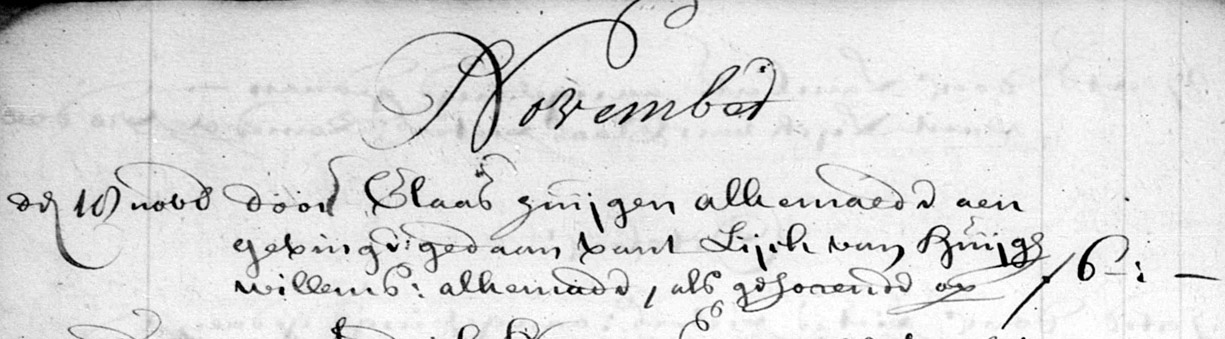 November
den 18 novb door Claas huijgen alkemade aen
gevinge gedaan vant Lijk van Huijgh
willems: alkemade, als gehorende op 6:–